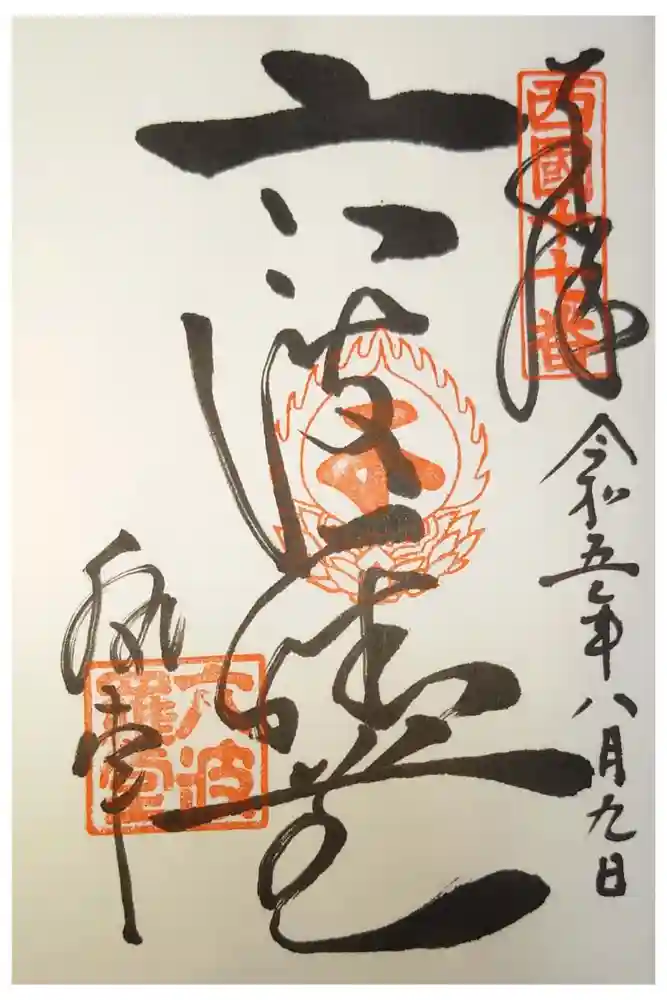 奉拝
西國十七番
令和五年八月九日
六波羅堂
六波
羅堂